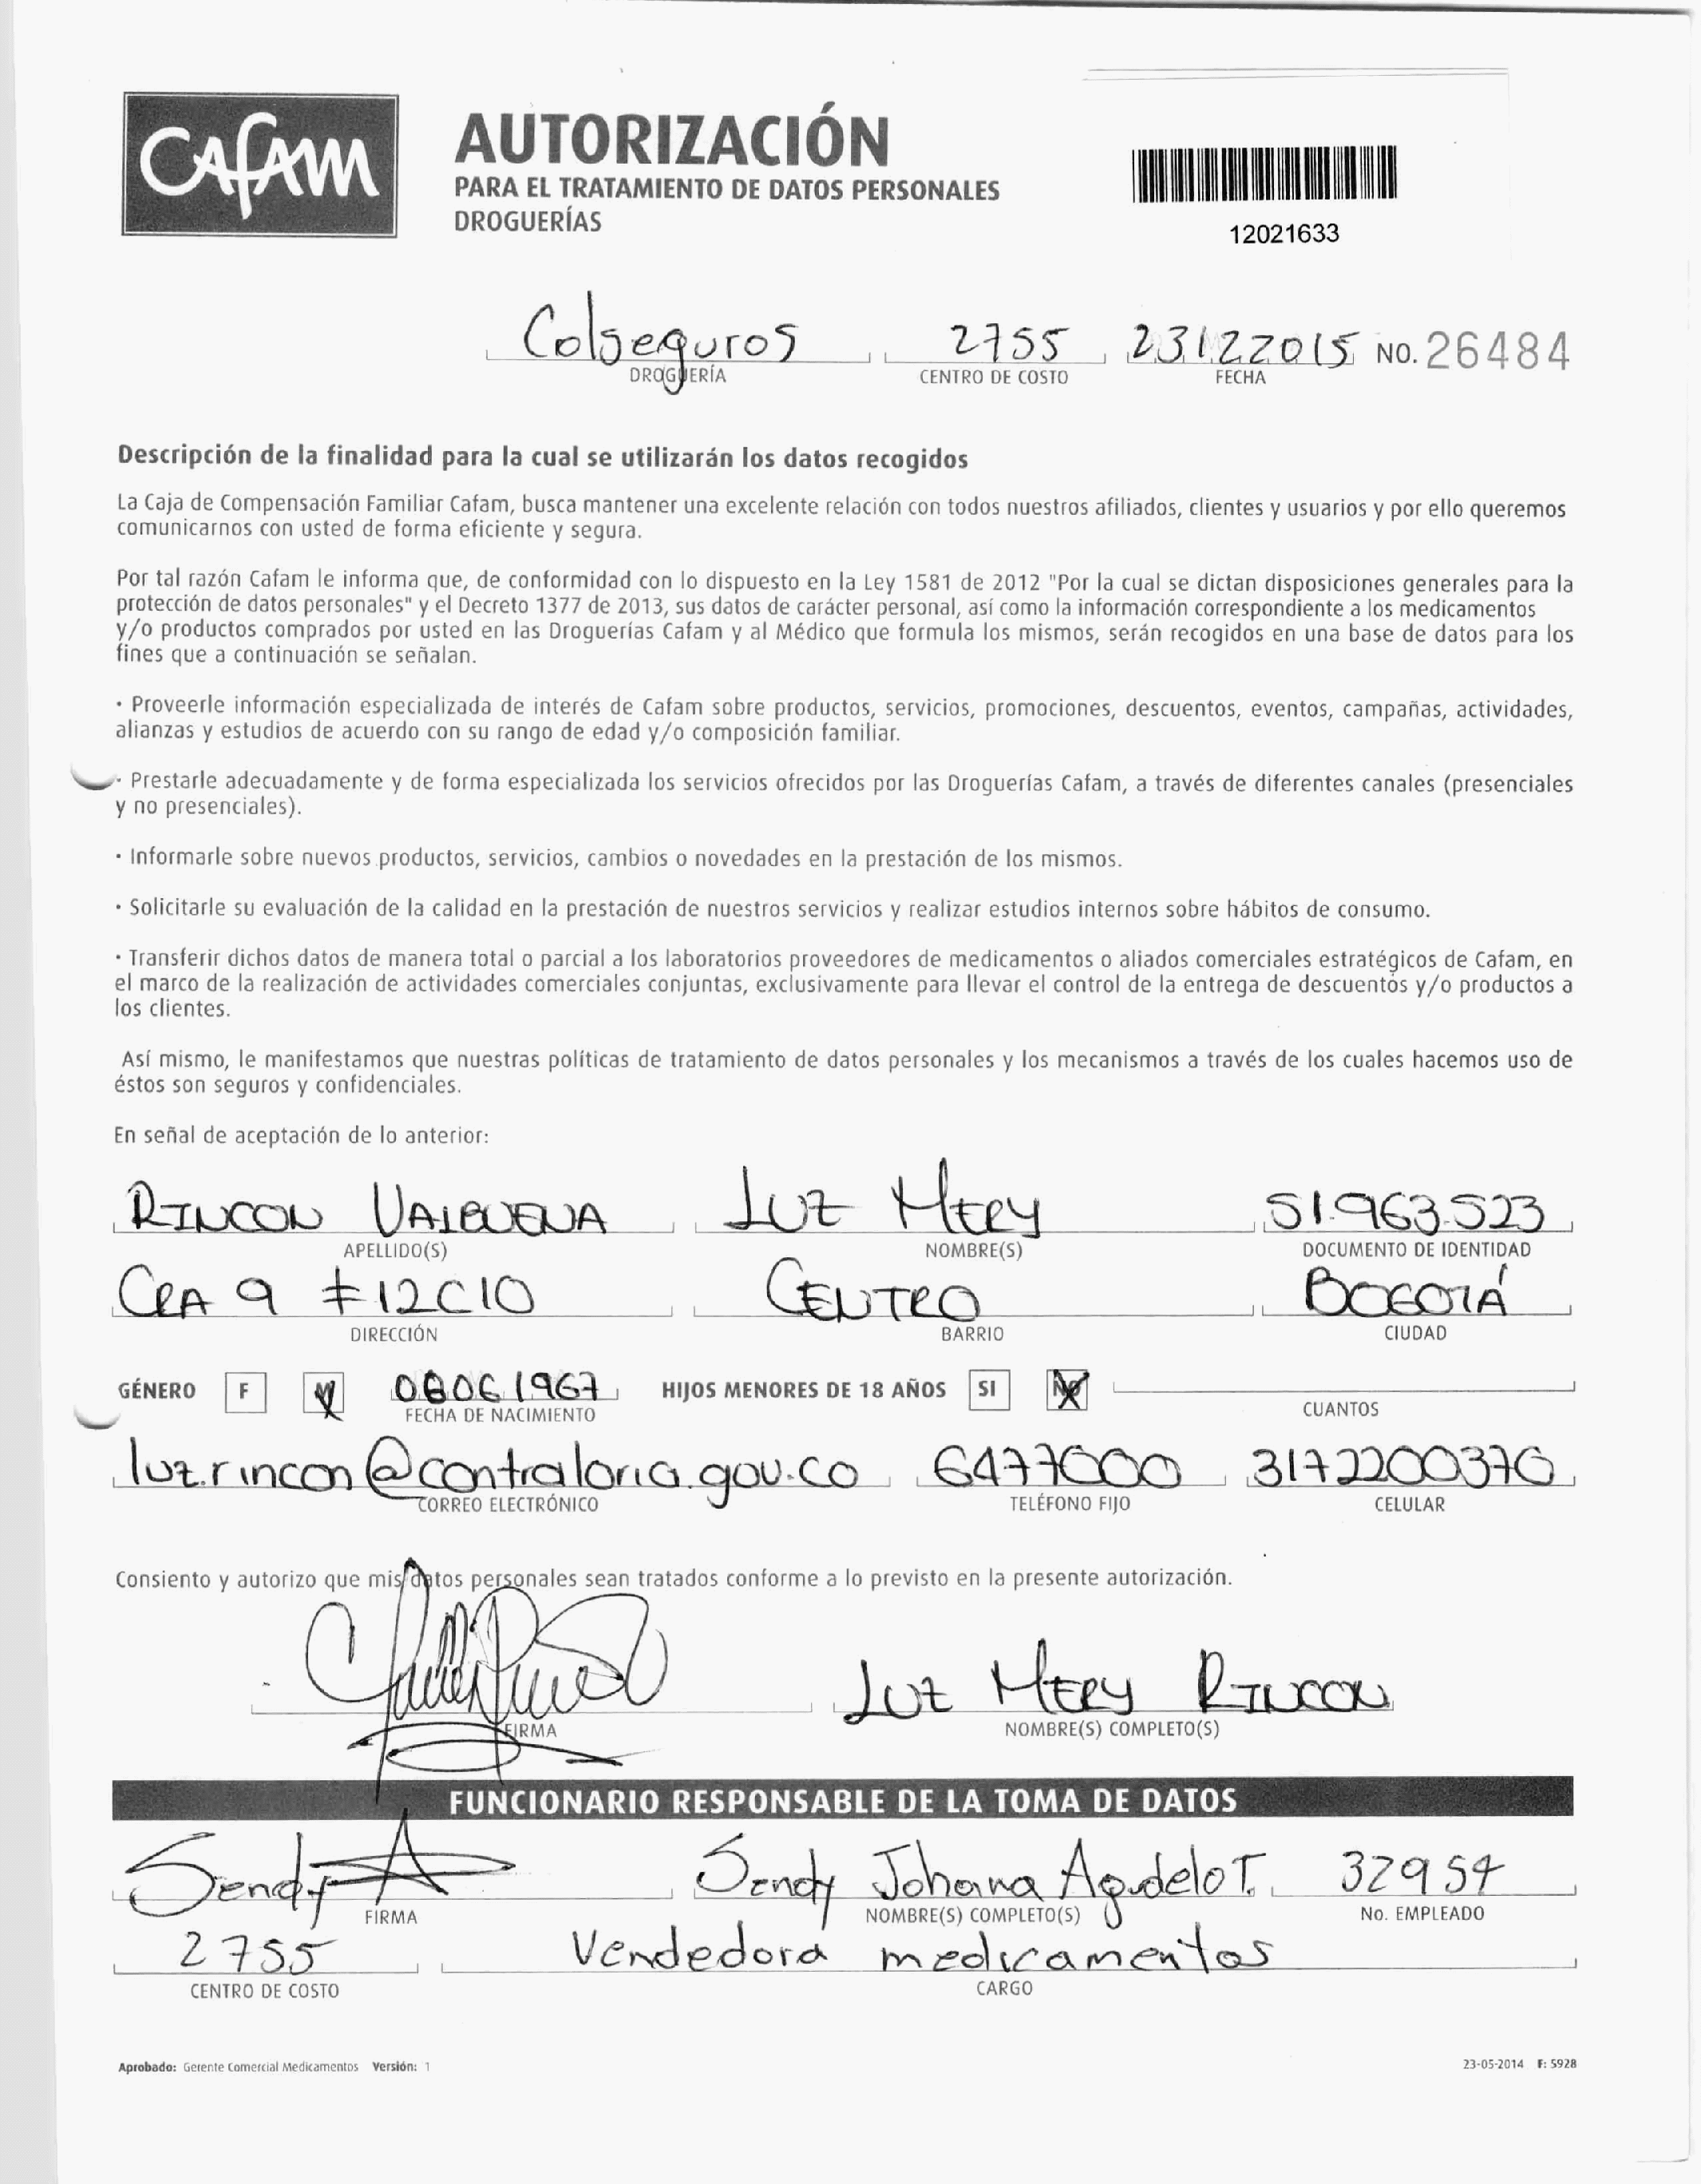 CAFAM
AUTORIZACIÓN
PARA EL TRATAMIENTO DE DATOS PERSONALES
DROGUERÍAS
12021633
Colseguros 2755 23122015 NO. 26484
DROGUERÍA CENTRO DE COSTO FECHA
Descripción de la finalidad para la cual se utilizarán los datos recogidos
La Caja de Compensación Familiar Cafam, busca mantener una excelente relación con todos nuestros afiliados, clientes y usuarios y por ello queremos
comunicarnos con usted de forma eficiente y segura.
Por tal razón Cafam le informa que, de conformidad con lo dispuesto en la Ley 1581 de 2012 "Por la cual se dictan disposiciones generales para la
protección de datos personales" y el Decreto 1377 de 2013, sus datos de carácter personal, así como la información correspondiente a los medicamentos
y/o productos comprados por usted en las Droguerías Cafam y al Médico que formula los mismos, serán recogidos en una base de datos para los
fines que a continuación se señalan.
· Proveerle información especializada de interés de Cafam sobre productos, servicios, promociones, descuentos, eventos, campañas, actividades,
alianzas y estudios de acuerdo con su rango de edad y/o composición familiar.
· Prestarle adecuadamente y de forma especializada los servicios ofrecidos por las Droguerías Cafam, a través de diferentes canales (presenciales
y no presenciales).
· Informarle sobre nuevos productos, servicios, cambios o novedades en la prestación de los mismos.
· Solicitarle su evaluación de la calidad en la prestación de nuestros servicios y realizar estudios internos sobre hábitos de consumo.
· Transferir dichos datos de manera total o parcial a los laboratorios proveedores de medicamentos o aliados comerciales estratégicos de Cafam, en
el marco de la realización de actividades comerciales conjuntas, exclusivamente para llevar el control de la entrega de descuentos y/o productos a
los clientes.
Así mismo, le manifestamos que nuestras políticas de tratamiento de datos personales y los mecanismos a través de los cuales hacemos uso de
éstos son seguros y confidenciales.
En señal de aceptación de lo anterior:
RINCON VALBUENA LUZ MERY 51.963.523
APELLIDO(S) NOMBRE(S) DOCUMENTO DE IDENTIDAD
CRA 9 #12C10 CENTRO BOGOTÁ
DIRECCIÓN BARRIO CIUDAD
GÉNERO F M 08061967 HIJOS MENORES DE 18 AÑOS SI NO
FECHA DE NACIMIENTO CUANTOS
luz.rincon@contraloria.gov.co 6477000 3172200370
CORREO ELECTRÓNICO TELÉFONO FIJO CELULAR
Consiento y autorizo que mis datos personales sean tratados conforme a lo previsto en la presente autorización.
LUZ MERY RINCON
FIRMA NOMBRE(S) COMPLETO(S)
FUNCIONARIO RESPONSABLE DE LA TOMA DE DATOS
Sendy A Sendy Johana Agudelo T. 32954
FIRMA NOMBRE(S) COMPLETO(S) No. EMPLEADO
2755 Vendedora medicamentos
CENTRO DE COSTO CARGO
Aprobado: Gerente Comercial Medicamentos Versión: 1 23-05-2014 F: 5928